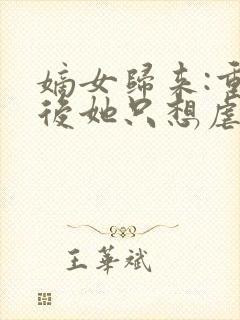 嫡女歸來:重
後她只想虐
王華斌